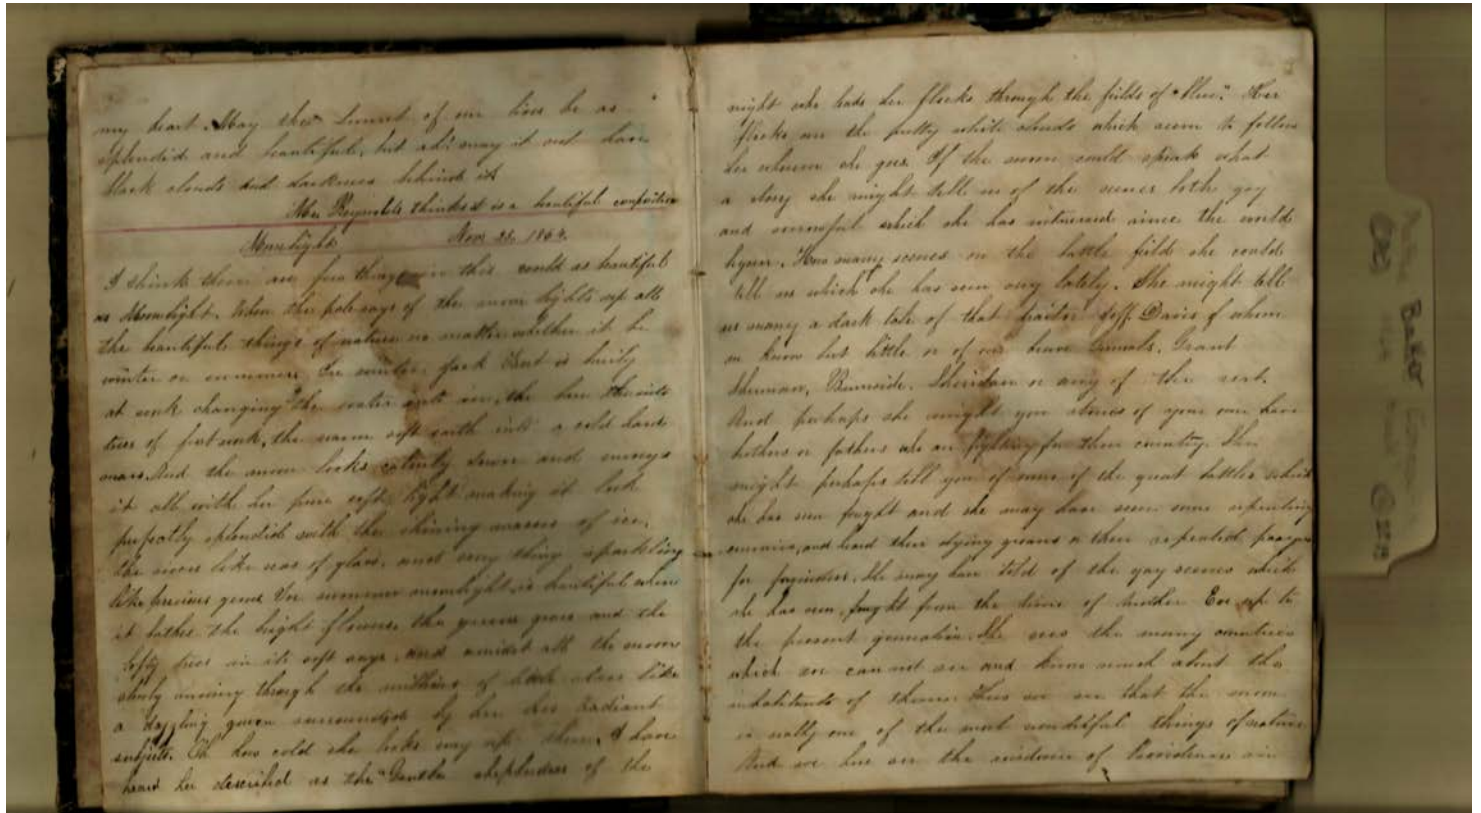 my heart. May the Sunset of our lives be as
splendid and beautiful, but oh! may it not have
black clouds and darkness behind it
Mrs Reynolds thinks it is a beautiful composition
Moonlight Nov. 1864.
I think there are few things in this world as beautiful
as Moonlight. When the pale rays of the moon lights up all
the beautiful things of nature no matter whether it be
winter or summer. In winter, Jack Frost is busily
at work changing the water into ice, the bare
trees of, the warm soft earth into a cold hard
mass. And the moon looks calmly down and surveys
it all with her pure soft light making it look
perfectly splendid with the shining masses of ice,
the rivers like seas of glass, and every thing sparkling
like precious gems. In summer moonlight is beautiful when
it bathes the bright flowers the green grass and the
lofty trees in its soft rays, and amidst all the moon
slowly moving through the millions of stars like
a dazzling queen surrounded by her radiant
subjects. Oh how cold she looks way up there. I have
heard her described as the "Gentle shepherdess of the
night who leads her flocks through the fields of blue." Her
flocks are the pretty white clouds which seem to follow
her wherever she goes. If the moon could speak what
a story she might tell us of the scenes both gay
and sorrowful which she has witnessed since the world
begun. How many scenes on the battle field she could
tell us which she has seen very lately. She might tell
us many a dark tale of that traitor Jeff. Davis of whom
we know but little or of our brave Generals, Grant
Sherman, Burnside, Sheridan or any of the rest.
And perhaps she might you stories of your own
brothers or fathers who are fighting for their country. She
might perhaps tell you of some of the great battles which
she has seen fought and she may have seen some repenting
and heard their dying groans or their repeated prayers
for forgiveness. She may have told of the gay scenes which
she has seen, from the time of mother Eve up to
the present generation. She sees the many countries
which we can not see and knows much about the
inhabitants of them. Thus we see that the moon
is really one of the most wonderful things of nature
And we here see the of Providence in
Baker